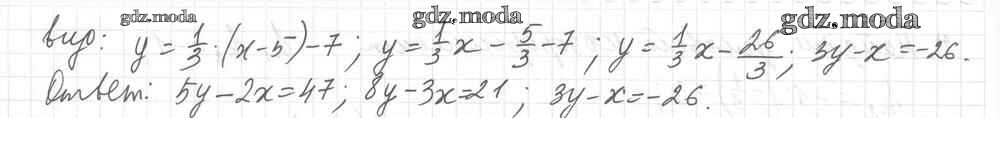 gdz.moda gdz.moda gdz.moda
вид: y = 1/3 · (x - 5) - 7; y = 1/3 x - 5/3 - 7; y = 1/3 x - 26/3; 3y - x = -26.
Ответ: 5y - 2x = 47; 8y - 3x = 21; 3y - x = -26.